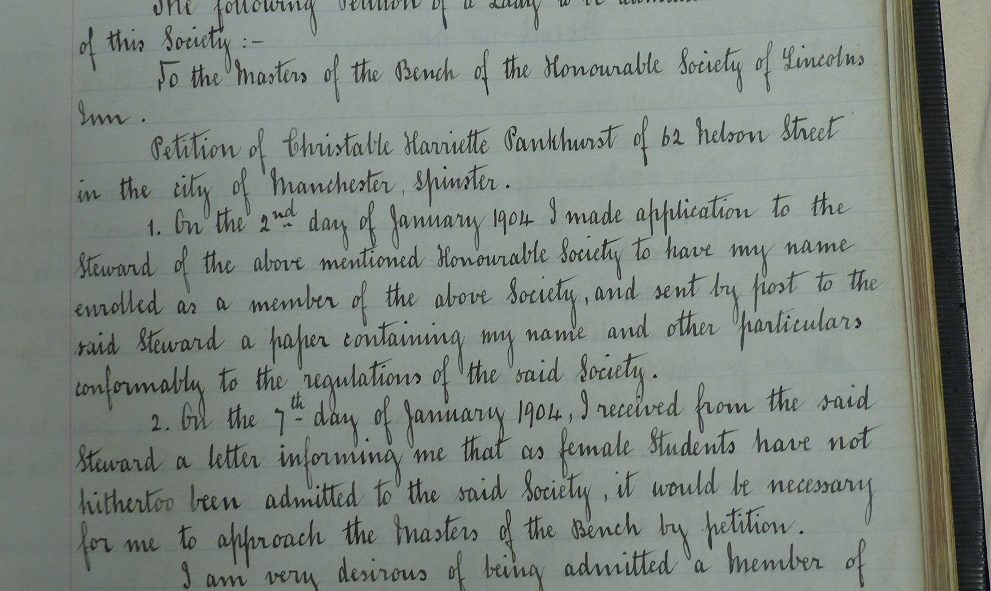 The following Petition of a Lady to be
of this Society :-
To the Masters of the Bench of the Honourable Society of Lincolns
Inn .
Petition of Christable Harriette Pankhurst of 62 Nelson Street
in the city of Manchester, Spinster.
1. On the 2nd day of January 1904 I made application to the
Steward of the above mentioned Honourable Society to have my name
enrolled as a member of the above Society, and sent by post to the
said Steward a paper containing my name and other particulars
conformably to the regulations of the said Society.
2. On the 7th day of January 1904, I received from the said
Steward a letter informing me that as female Students have not
hithertoo been admitted to the said Society, it would be necessary
for me to approach the Masters of the Bench by petition.
I am very desirous of being admitted a Member of